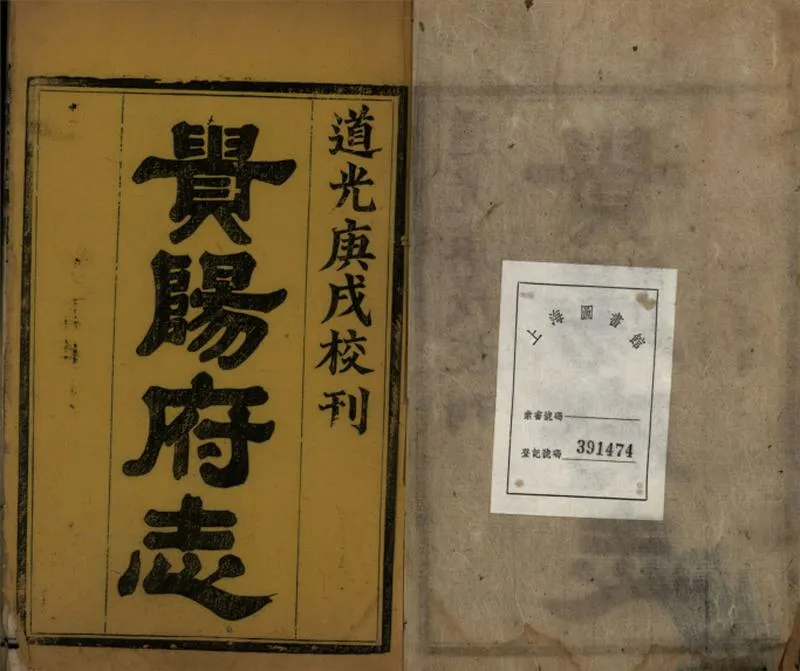 道光庚戌校刊
貴陽府志
上海圖書館
索書號碼
登記號碼 391474